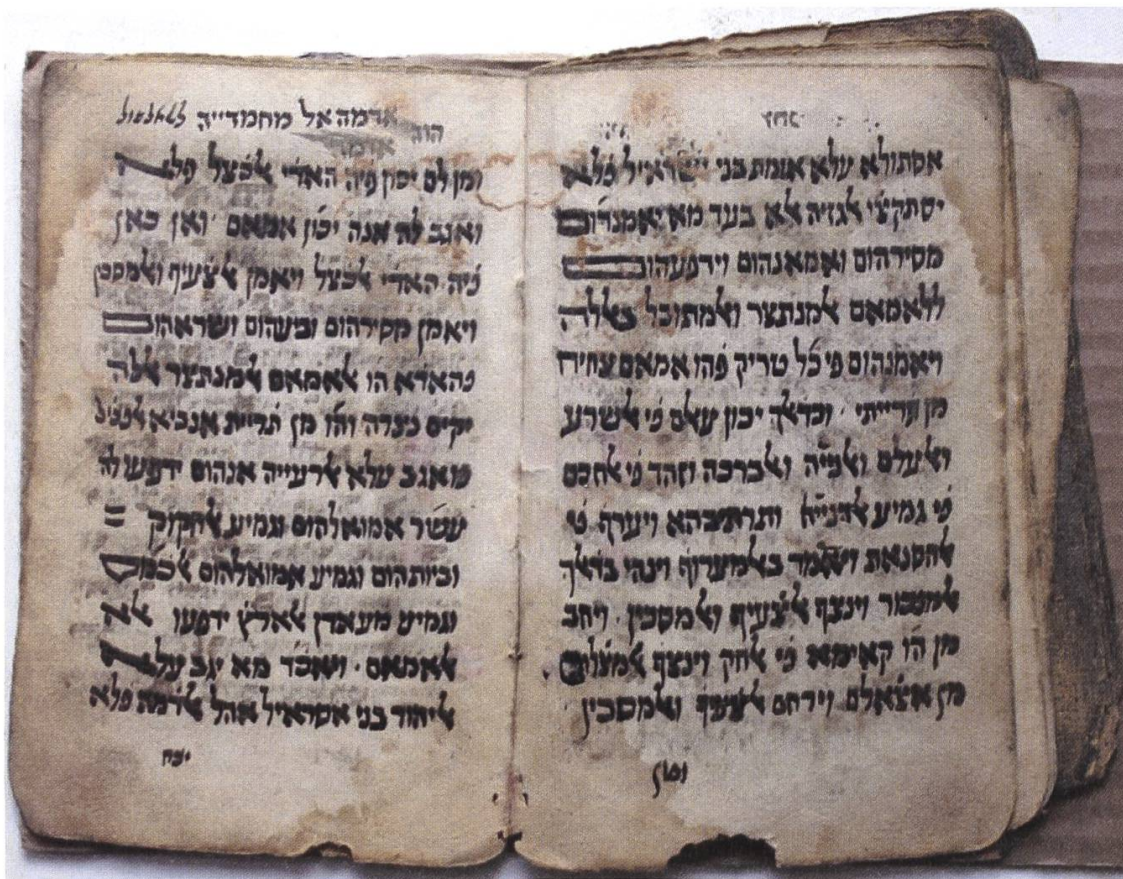 אסתולא עלא אומת בני ישראיל פלא
יסתקצ̇י לגזיה לא בעד מא יאמנהום
מסירהום ואמאנהום וירפעהום
ללאמאם למנתצר ולמתוכל באללה
ויאמנהום פי כל טריק פהו אמאם צחיח
מן ד̇רייתי ׳ וכד̇לך יכון עאלם פי לשרע
ולעלם ולפייה ולברכה וזהד פי לחכם
פי גמיע לדנייא ותרתיבהא ויערף פי
להסנאת ויאמר באלמערוף וינהי בד̇לך
למנכור וינצף לצ̇עיף ולמסכין ׳ ויחב
מן הו קאימא פי לחק וינצף למצ̇לום
מן אצ̇אלם וירחם לצ̇עיף ולמסכין ׳
ומן
אדמה אל מחמדייה
הוג
ומן לם יכון פיה האד̇י לכ̇צל פלא
ואגב לה אנה יכון אמאם ׳ ואן כאן
פיה האד̇י לכ̇צל ויאמן לצ̇עיף ולמסכין
ויאמן מסירהום וביעהום ושראהום
פהאד̇א הו לאמאם למנתצר אללה
יקים נצרה והו מן ד̇ריית אנביא
מאגב עלא לרעייה אנהום ידפעו לה
עשר אמואלהום וגמיע לחקוק =
וביותהום וגמיע אמואלהום לכ̇מס
וגמיע מעאדן לארץ̇ ידפעו לא
לאמאם ׳ ואכד̇ מא יגב עלא
ליהוד בני אסראיל אהל לד̇מה פלא
יכח